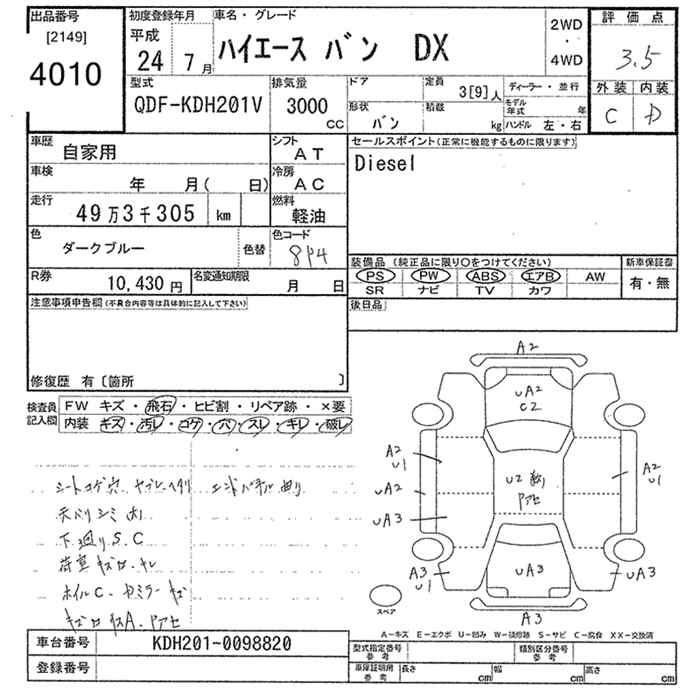 出品番号 初度登録年月 車名・グレード 評価点
[2149] 平成
4010 24年 7月 ハイエース バン DX 2WD・4WD 3.5
外装 内装
C D
型式 排気量 ドア 定員 3[9]人 ディーラー・並行
QDF-KDH201V 3000 CC 形状 バン 積載 kg モデル年式 年
ハンドル 左・右
車歴 自家用 シフト AT セールスポイント(正常に機能するものに限ります)
Diesel
車検 年 月( 日) 冷房 AC
走行 49万3千305 km 燃料 軽油
色 ダークブルー 色替 色コード 8P4
装備品 (純正品に限り○をつけてください) 新車保証書
PS PW ABS エアB AW 有・無
SR ナビ TV カワ
R券 10,430円 名変通知期限 月 日
後日品
注意事項申告欄(不具合内容等は具体的に記入して下さい)
修復歴 有〔箇所 〕
検査員記入欄 FW キズ・飛石・ヒビ割・リペア跡・×要
内装 キズ・汚レ・コゲ・穴・スレ・キレ・破レ
シートコゲ穴 ヤブレ ヘタリ
天バリシミ大
下廻りS.C
荷室キズ
ホイルC.
A2
UA2
C2
A2
U1
A2
U1
U2
アセ
UA2
UA3
A3
U1
UA3
UA3
スペア
A3
A-キズ E-エクボ U-凹み W-補修跡 S-サビ C-腐食 XX-交換済
車台番号 KDH201-0098820
登録番号
型式指定番号 参考 類別区分番号 参考
車庫証明用 参考 長さ cm 幅 cm 高さ cm